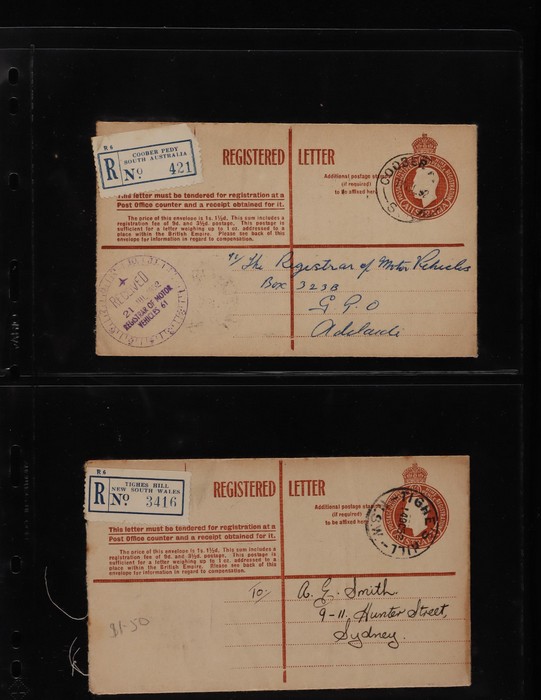 R6
R
COOBER PEDY
SOUTH AUSTRALIA
No 421
REGISTERED LETTER
COOBER
Additional postage
(if required)
to be affixed here
This letter must be tendered for registration at a
Post Office counter and a receipt obtained for it.
The price of this envelope is 1s. 1½d. This sum includes a
registration fee of 9d. and 3½d. postage. This postage is
sufficient for a letter weighing up to 1 oz. addressed to a
place within the British Empire. Please see back of this
envelope for information in regard to compensation.
RECEIVED
21
REGISTRAR OF MOTOR
VEHICLES 61
The Registrar of Motor Vehicles
Box 323B
G.P.O
Adelaide
R6
R
TIGHES HILL
NEW SOUTH WALES
No 3416
REGISTERED LETTER
TIGHES HILL
N.S.W
Additional postage
(if required)
to be affixed here
This letter must be tendered for registration at a
Post Office counter and a receipt obtained for it.
The price of this envelope is 1s. 1½d. This sum includes a
registration fee of 9d. and 3½d. postage. This postage is
sufficient for a letter weighing up to 1 oz. addressed to a
place within the British Empire. Please see back of this
envelope for information in regard to compensation.
To:-
A. E. Smith.
9-11. Hunter Street,
Sydney.
$1-50